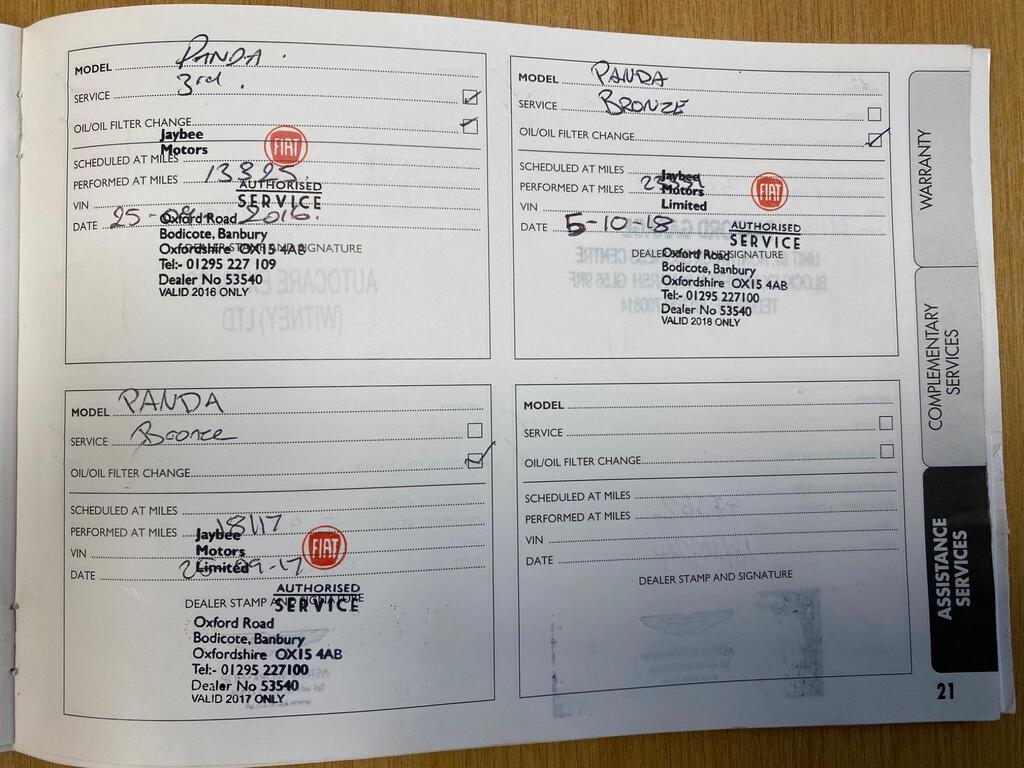 MODEL PANDA.
SERVICE 3rd.
OIL/OIL FILTER CHANGE
Jaybee
Motors
FIAT
SCHEDULED AT MILES
PERFORMED AT MILES 13325
AUTHORISED
SERVICE
VIN
DATE 25-08- 2016.
Oxford Road
Bodicote, Banbury
Oxfordshire OX15 4AB
DEALER STAMP AND SIGNATURE
Tel:- 01295 227 109
Dealer No 53540
VALID 2016 ONLY
MODEL PANDA
SERVICE BRONZE
OIL/OIL FILTER CHANGE
SCHEDULED AT MILES
Jaybee
Motors
Limited
FIAT
PERFORMED AT MILES
VIN
DATE 5-10-18
AUTHORISED
SERVICE
DEALER STAMP AND SIGNATURE
Oxford Road
Bodicote, Banbury
Oxfordshire OX15 4AB
Tel:- 01295 227100
Dealer No 53540
VALID 2018 ONLY
MODEL PANDA
SERVICE Bronze
OIL/OIL FILTER CHANGE
SCHEDULED AT MILES
PERFORMED AT MILES 18117
Jaybee
Motors
Limited
FIAT
VIN
DATE 25-09-17
AUTHORISED
SERVICE
DEALER STAMP AND SIGNATURE
Oxford Road
Bodicote, Banbury
Oxfordshire OX15 4AB
Tel:- 01295 227100
Dealer No 53540
VALID 2017 ONLY
MODEL
SERVICE
OIL/OIL FILTER CHANGE
SCHEDULED AT MILES
PERFORMED AT MILES
VIN
DATE
DEALER STAMP AND SIGNATURE
WARRANTY
COMPLEMENTARY
SERVICES
ASSISTANCE
SERVICES
21